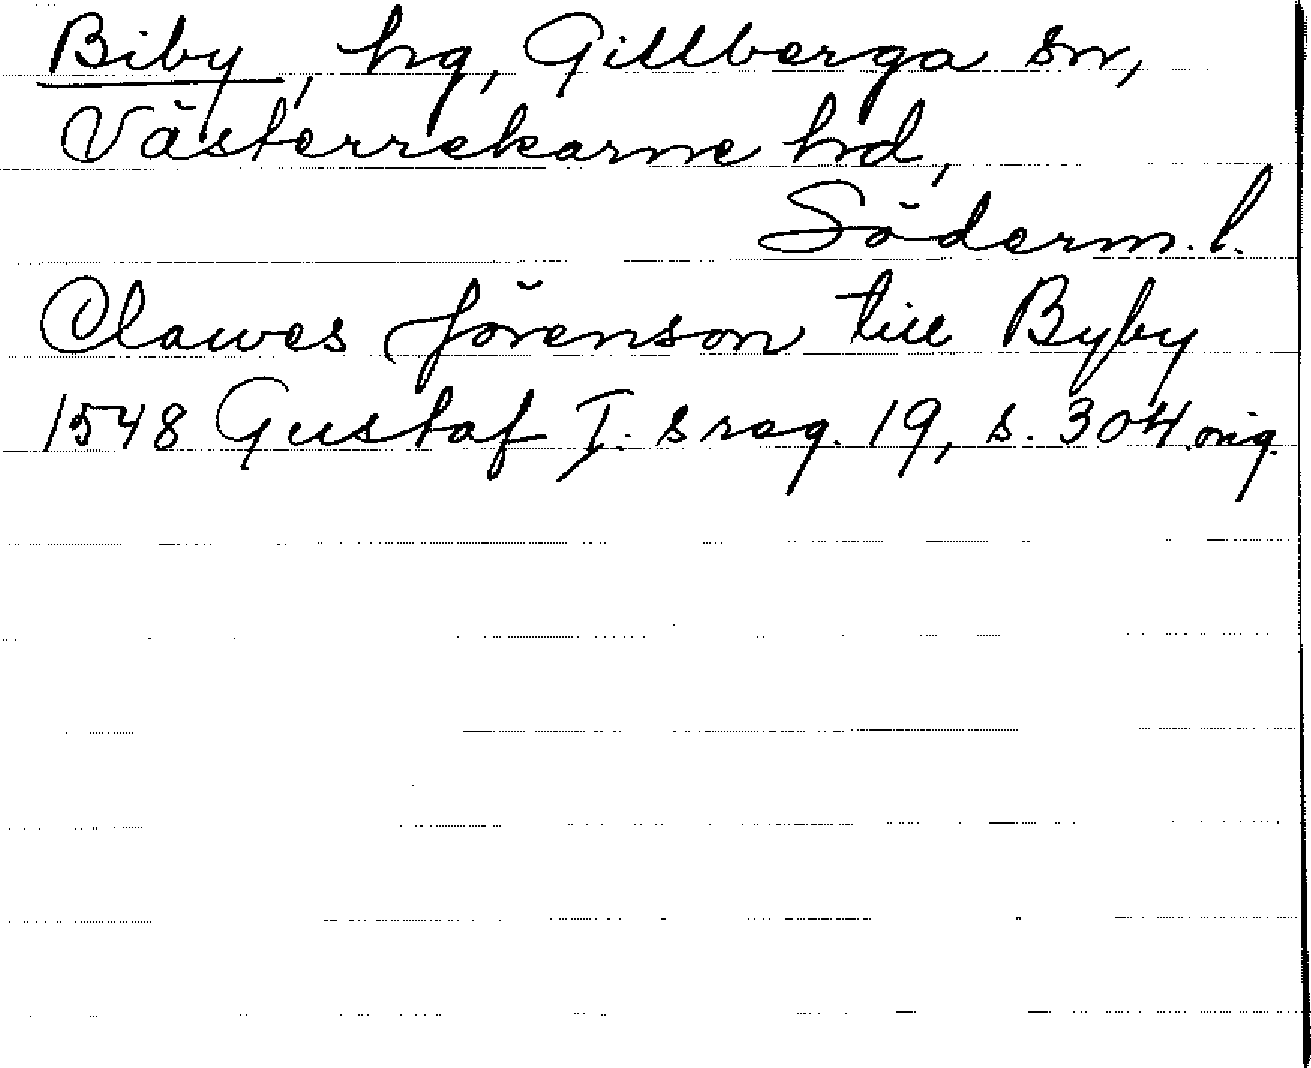 Biby, hg, Gillberga sn,
Västerrekarne hd,
Söderm. l.
Clawes Jörenson till Byby
1548 Gustaf I:s reg. 19, s. 304 orig.